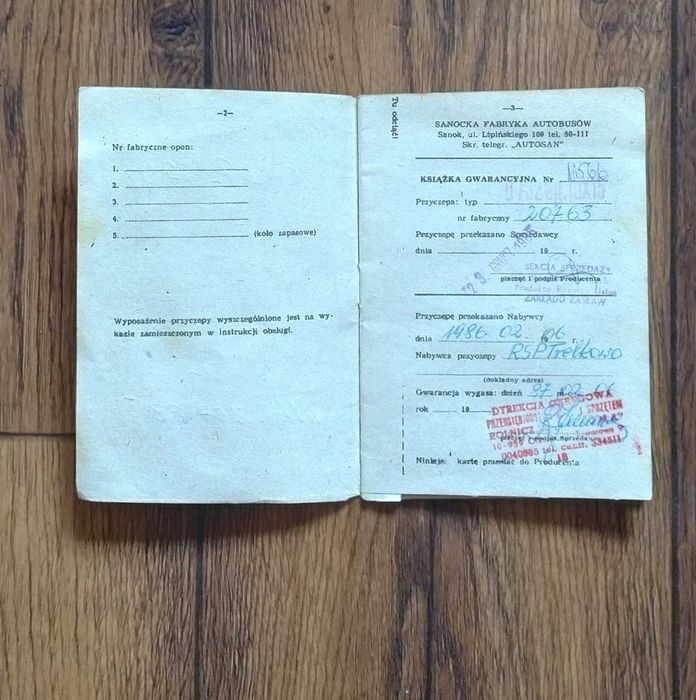 —2—
Nr fabryczne opon:
1.
2.
3.
4.
5. (koło zapasowe)
Wyposażenie przyczepy wyszczególnione jest na wy-
kazie zamieszczonym w instrukcji obsługi.
Tu odciąć!
—3—
SANOCKA FABRYKA AUTOBUSÓW
Sanok, ul. Lipińskiego 109 tel. 50-111
Skr. telegr. „AUTOSAN”
KSIĄŻKA GWARANCYJNA Nr
Przyczepa: typ
nr fabryczny 20763
Przyczepę przekazano Sprzedawcy
dnia 19 r.
SEKCJA SPRZEDAŻY
pieczęć i podpis Producenta
ZAKŁADU ZASŁAW
Przyczepę przekazano Nabywcy
dnia 1986.02.06 19 r.
Nabywca przyczepy RSP Trelkowo
(dokładny adres)
Gwarancja wygasa: dzień 87 m 02 06
rok 19
DYREKCJA OKRĘGOWA
SPRZĘTEM
pieczęć i podpis Sprzedawcy
0040985 tel. centr. 334511
18
Niniejszą kartę przesłać do Producenta